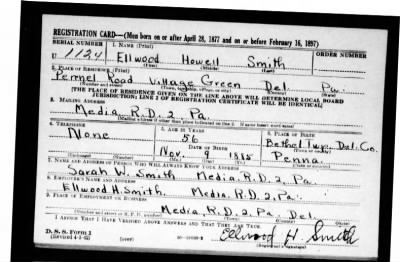 REGISTRATION CARD—(Men born on or after April 28, 1877 and on or before February 16, 1897)
SERIAL NUMBER 1. NAME (Print) ORDER NUMBER
U 1124 Ellwood Howell Smith
(First) (Middle) (Last)
2. PLACE OF RESIDENCE (Print)
Pennel Road Village Green Del. Pa.
(Number and street) (Town, township, village, or city) (County) (State)
[THE PLACE OF RESIDENCE GIVEN ON THE LINE ABOVE WILL DETERMINE LOCAL BOARD
JURISDICTION; LINE 2 OF REGISTRATION CERTIFICATE WILL BE IDENTICAL]
3. MAILING ADDRESS
Media R.D. 2, Pa.
4. TELEPHONE 5. AGE IN YEARS 6. PLACE OF BIRTH
None 56 Bethel Twp. Del. Co.
DATE OF BIRTH (Town or county)
Nov. 9 Penna.
(Exchange) (Number) (Mo.) (Day) (Yr.) (State or country)
7. NAME AND ADDRESS OF PERSON WHO WILL ALWAYS KNOW YOUR ADDRESS
Sarah W. Smith Media, R.D. 2, Pa.
8. EMPLOYER'S NAME AND ADDRESS
Ellwood H. Smith, Media, R.D. 2, Pa.
9. PLACE OF EMPLOYMENT OR BUSINESS
Media, R.D. 2, Pa. Del.
(Number and street or R. F. D. number) (Town) (County) (State)
I AFFIRM THAT I HAVE VERIFIED ABOVE ANSWERS AND THAT THEY ARE TRUE.
D. S. S. Form 1
(Revised 4-1-42) (over) Ellwood H. Smith
(Registrant's signature)